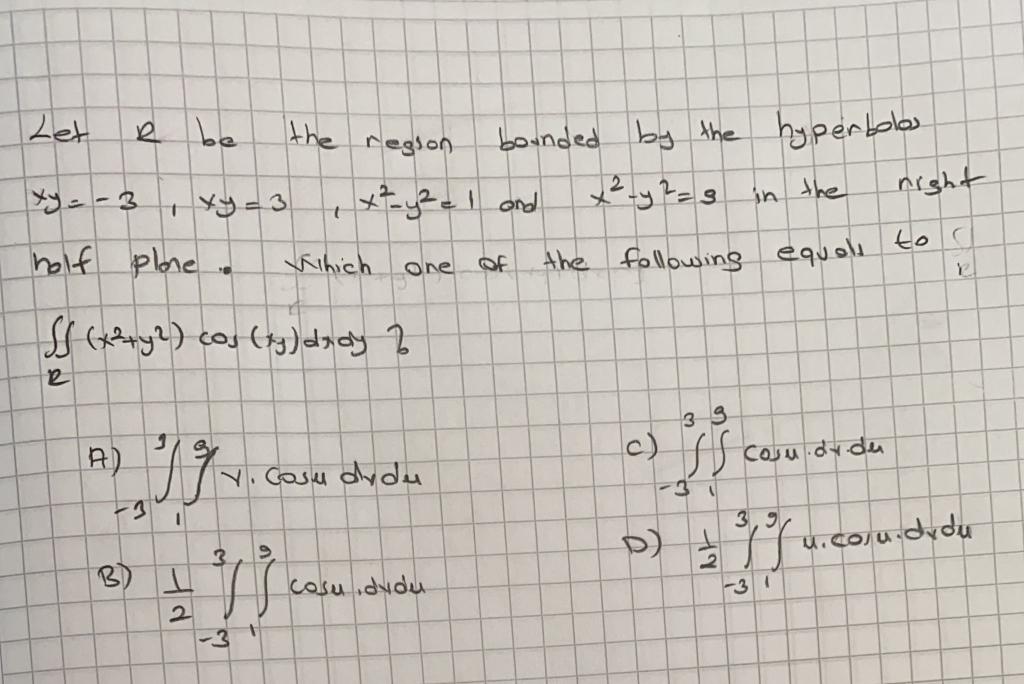 Let R be the region bounded by the hyperbolas
xy = -3 , xy = 3 , x²-y² = 1 and x²-y² = 9 in the right
half plane. Which one of the following equals to
∬ (x²+y²) cos (xy) dxdy ?
R
A) ∫₋₃³ ∫₁⁹ v. cosu dvdu
C) ∫₋₃³ ∫₁⁹ cosu.dv.du
B) 1/2 ∫₋₃³ ∫₁⁹ cosu.dvdu
D) 1/2 ∫₋₃³ ∫₁⁹ u.cosu.dvdu